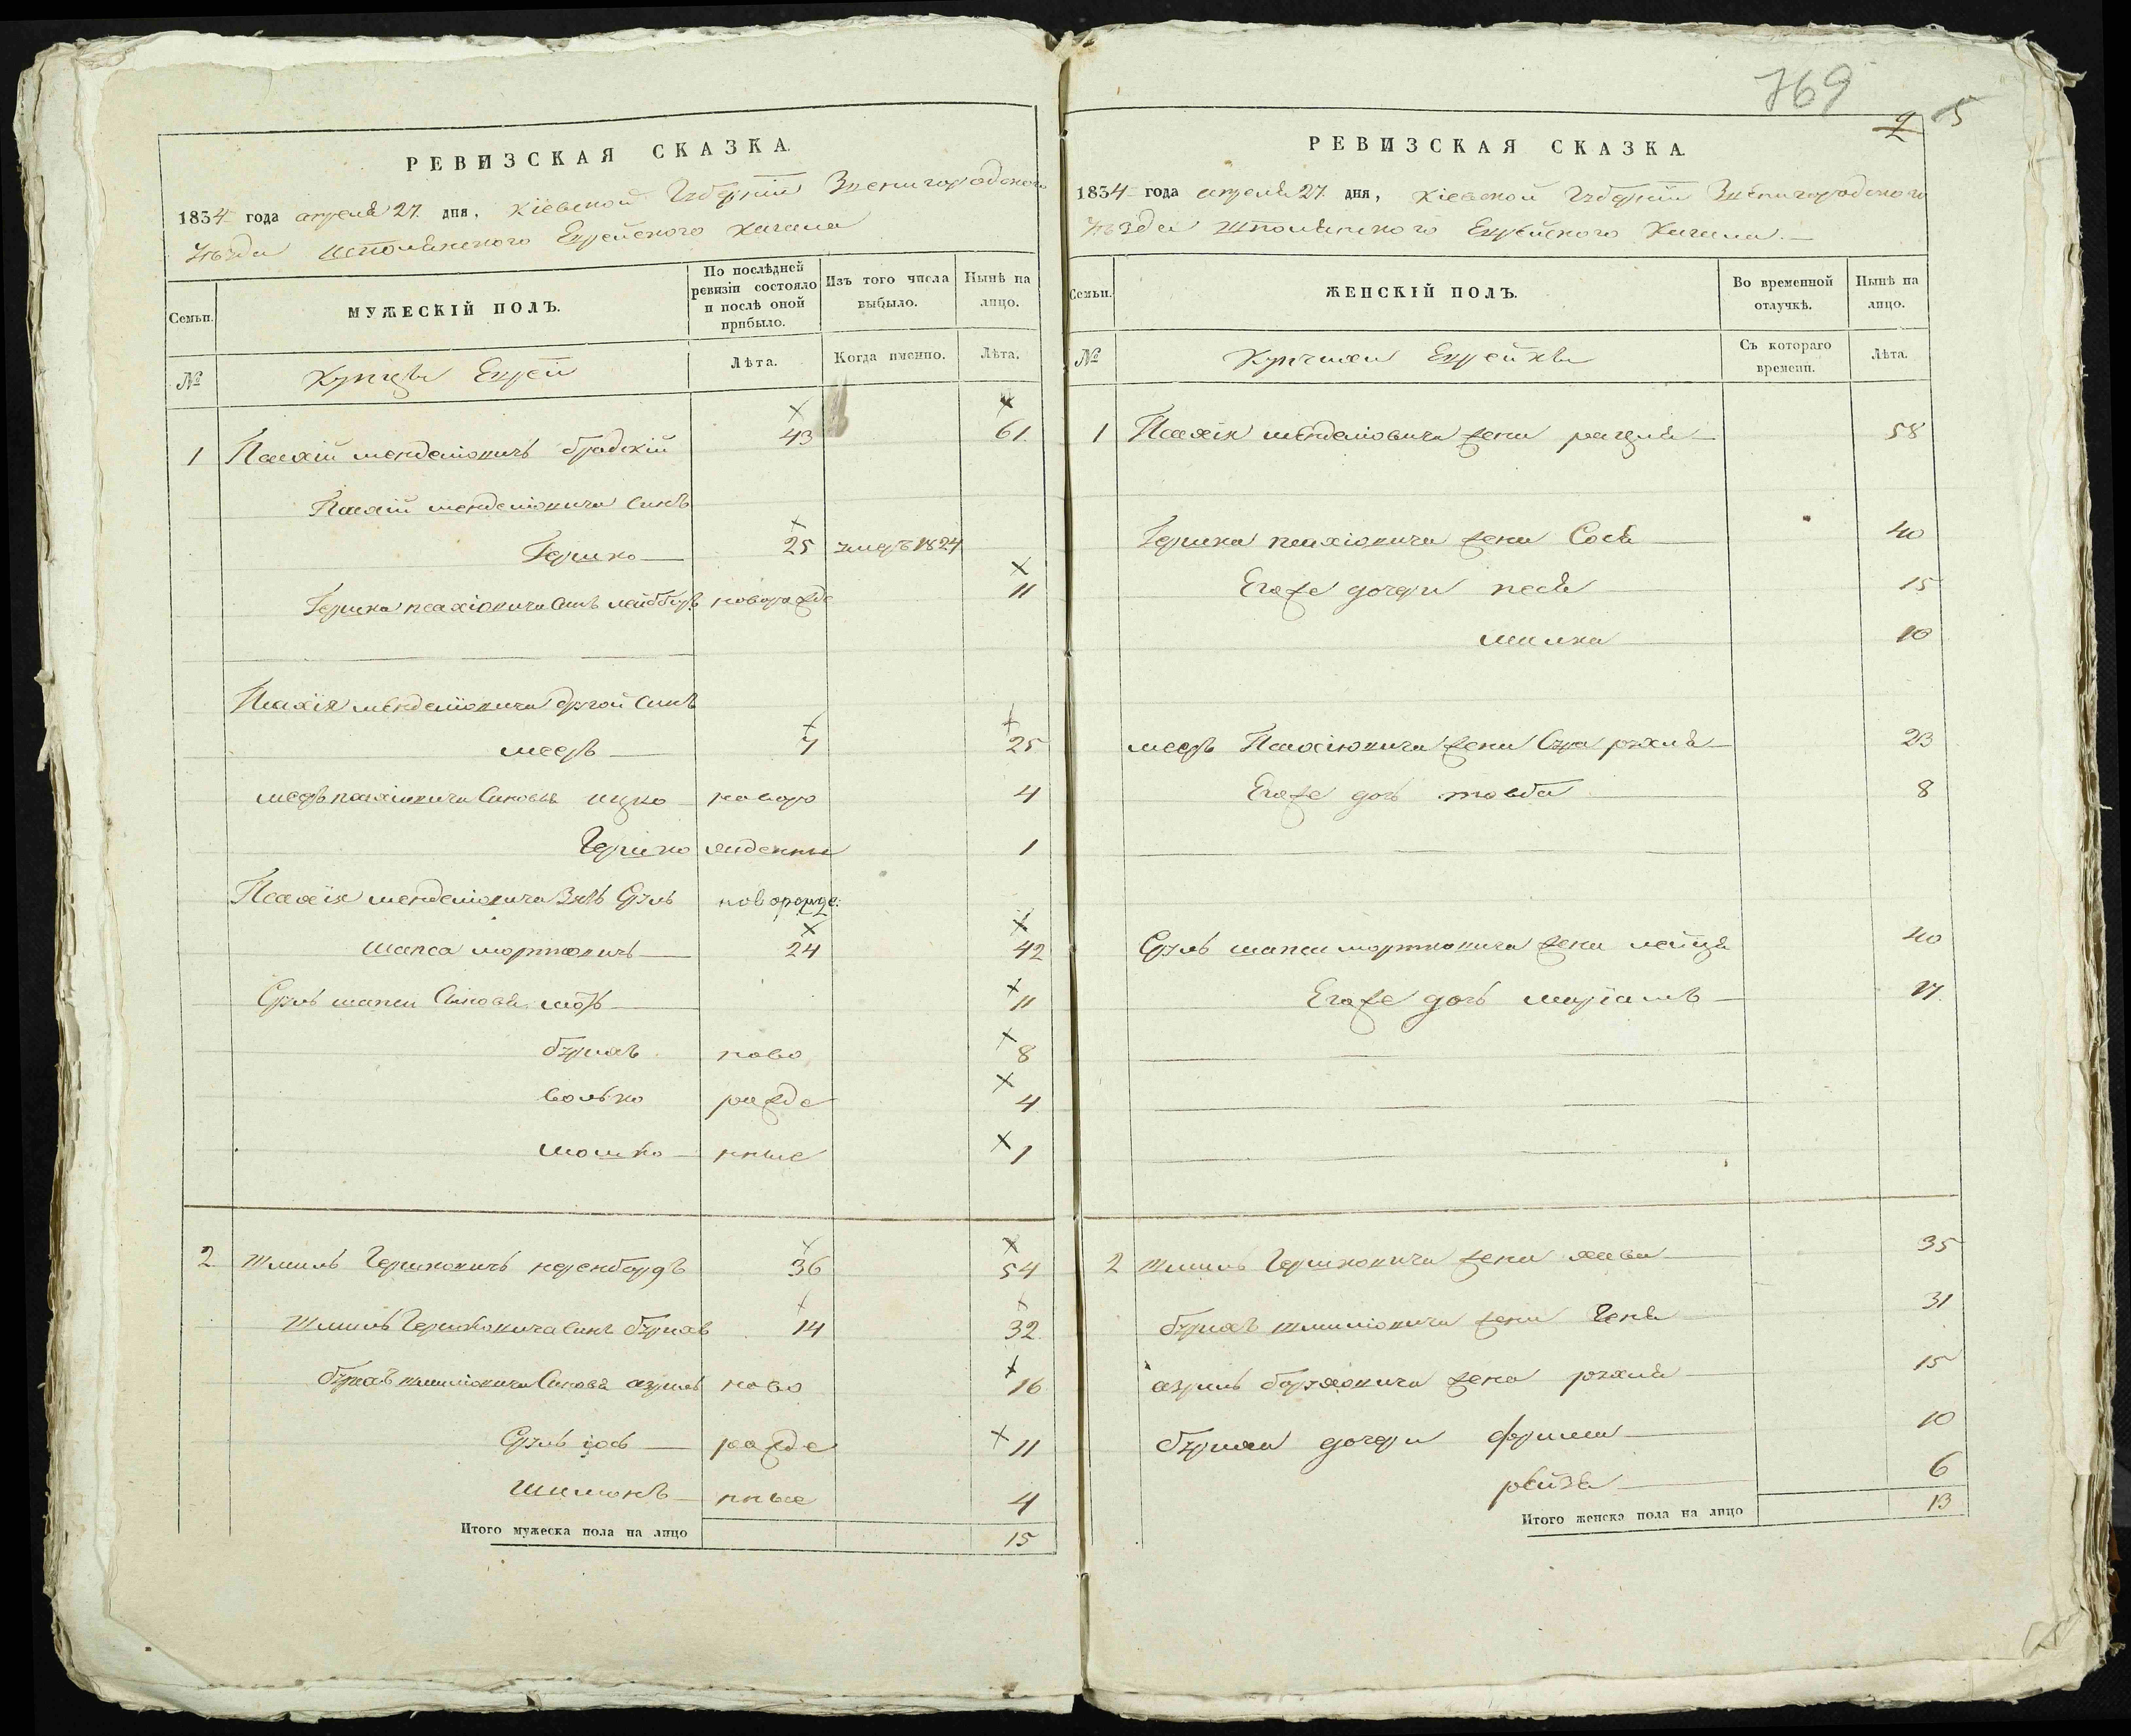 769
2 5
РЕВИЗСКАЯ СКАЗКА.
1834 года апреля 27. дня, Кіевской Губерніи Звенигородского
уѣзда Шполянского Еврейского Кагала
Семьи. МУЖЕСКІЙ ПОЛЪ. По послѣдней ревизіи состояло и послѣ оной прибыло. Изъ того числа выбыло. Нынѣ на лицо.
№ Купцы Евреи Лѣта. Когда именно. Лѣта.
1 Псахій менделіовичъ бродскій 43 61.
Псахій менделіовича синъ
Гершко 25 умеръ 1824
Гершка псахіовича синъ лейбберъ новорожде 11
Псахія менделіовича другой синъ
мееръ 7 25
мееръ псахіовича синовья ицко новоро 4
Гершко жденные 1
Псахія менделіовича зять Сруль новорожде:
шапса мортковичъ 24 42
Сруль шапси синовя 11
бурихъ ново 8
волько рожде 4
мошко нные 1
2 шмиль Гершковичъ 36 54
шмиль Гершковича синъ бурихъ 14 32
бурихъ шмиліовича синовя азриль ново 16
Сруль іось рожде 11
шимонъ нные 4
Итого мужеска пола на лицо 15
РЕВИЗСКАЯ СКАЗКА.
1834 года апреля 27. дня, Кіевской Губерніи Звенигородского
уѣзда Шполянского Еврейского Кагала.
Семьи. ЖЕНСКІЙ ПОЛЪ. Во временной отлучкѣ. Нынѣ на лицо.
№ Купчихи Еврейки Съ котораго времени. Лѣта.
1 Псахія менделіовича жена рахля 58
Гершка псахіовича жена Сося 40
Егоже дочери песя 15
малка 10
мееръ Псахіовича жена Сура рухля 23
Егоже дочь товба 8
Сруль шапси мортковича жена лейця 40
Егоже дочь миріамъ 17.
2 шмиль Гершковича жена хава 35
бурихъ шмиліовича жена Геня 31
азриль борухович​а жена рухля 15
буриха дочери фрима 10
рейзя 6
Итого женска пола на лицо 13